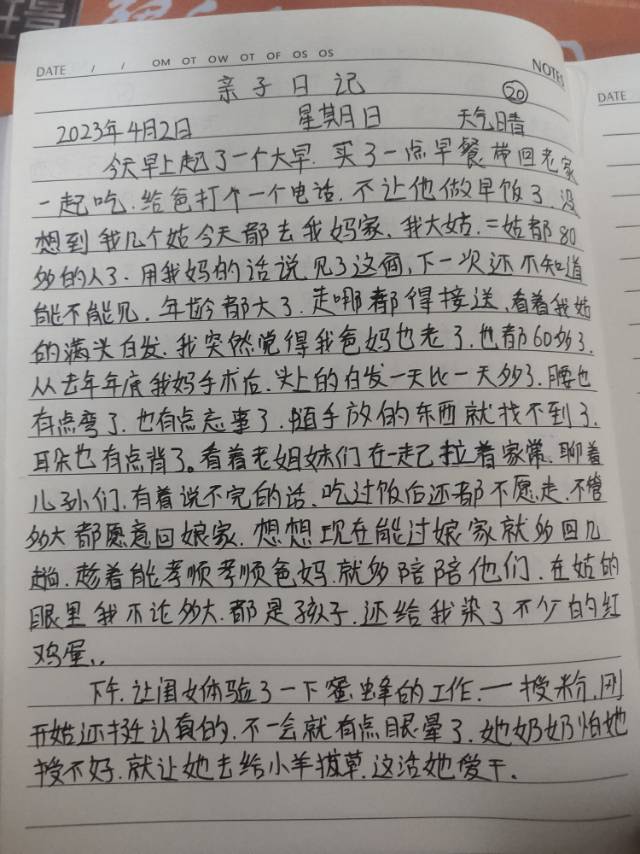 DATE / / OM OT OW OT OF OS OS NOTES
亲子日记 20
2023年4月2日 星期日 天气晴
今天早上起了一个大早.买了一点早餐带回老家
一起吃.给爸打个一个电话.不让他做早饭了.没
想到我几个姑今天都去我妈家.我大姑.二姑都80
多的人了.用我妈的话说.见了这个面,下一次还不知道
能不能见.年龄都大了.走哪都得接送.看着我姑
的满头白发.我突然觉得我爸妈也老了.也都60多了.
从去年年底我妈手术后.头上的白发一天比一天多了.腰也
有点弯了.也有点忘事了.随手放的东西就找不到了.
耳朵也有点背了。看着老姐妹们在一起拉着家常.聊着
儿孙们.有着说不完的话.吃过饭后还都不愿走.不管
多大都愿意回娘家.想想现在能过娘家就多回几
趟.趁着能孝顺孝顺爸妈.就多陪陪他们.在姑的
眼里我不论多大.都是孩子.还给我染了不少的红
鸡蛋..
下午.让闺女体验了一下蜜蜂的工作.一授粉.刚
开始还挺认真的.不一会就有点眼晕了.她奶奶怕她
授不好.就让她去给小羊拔草.这活她爱干.
DATE